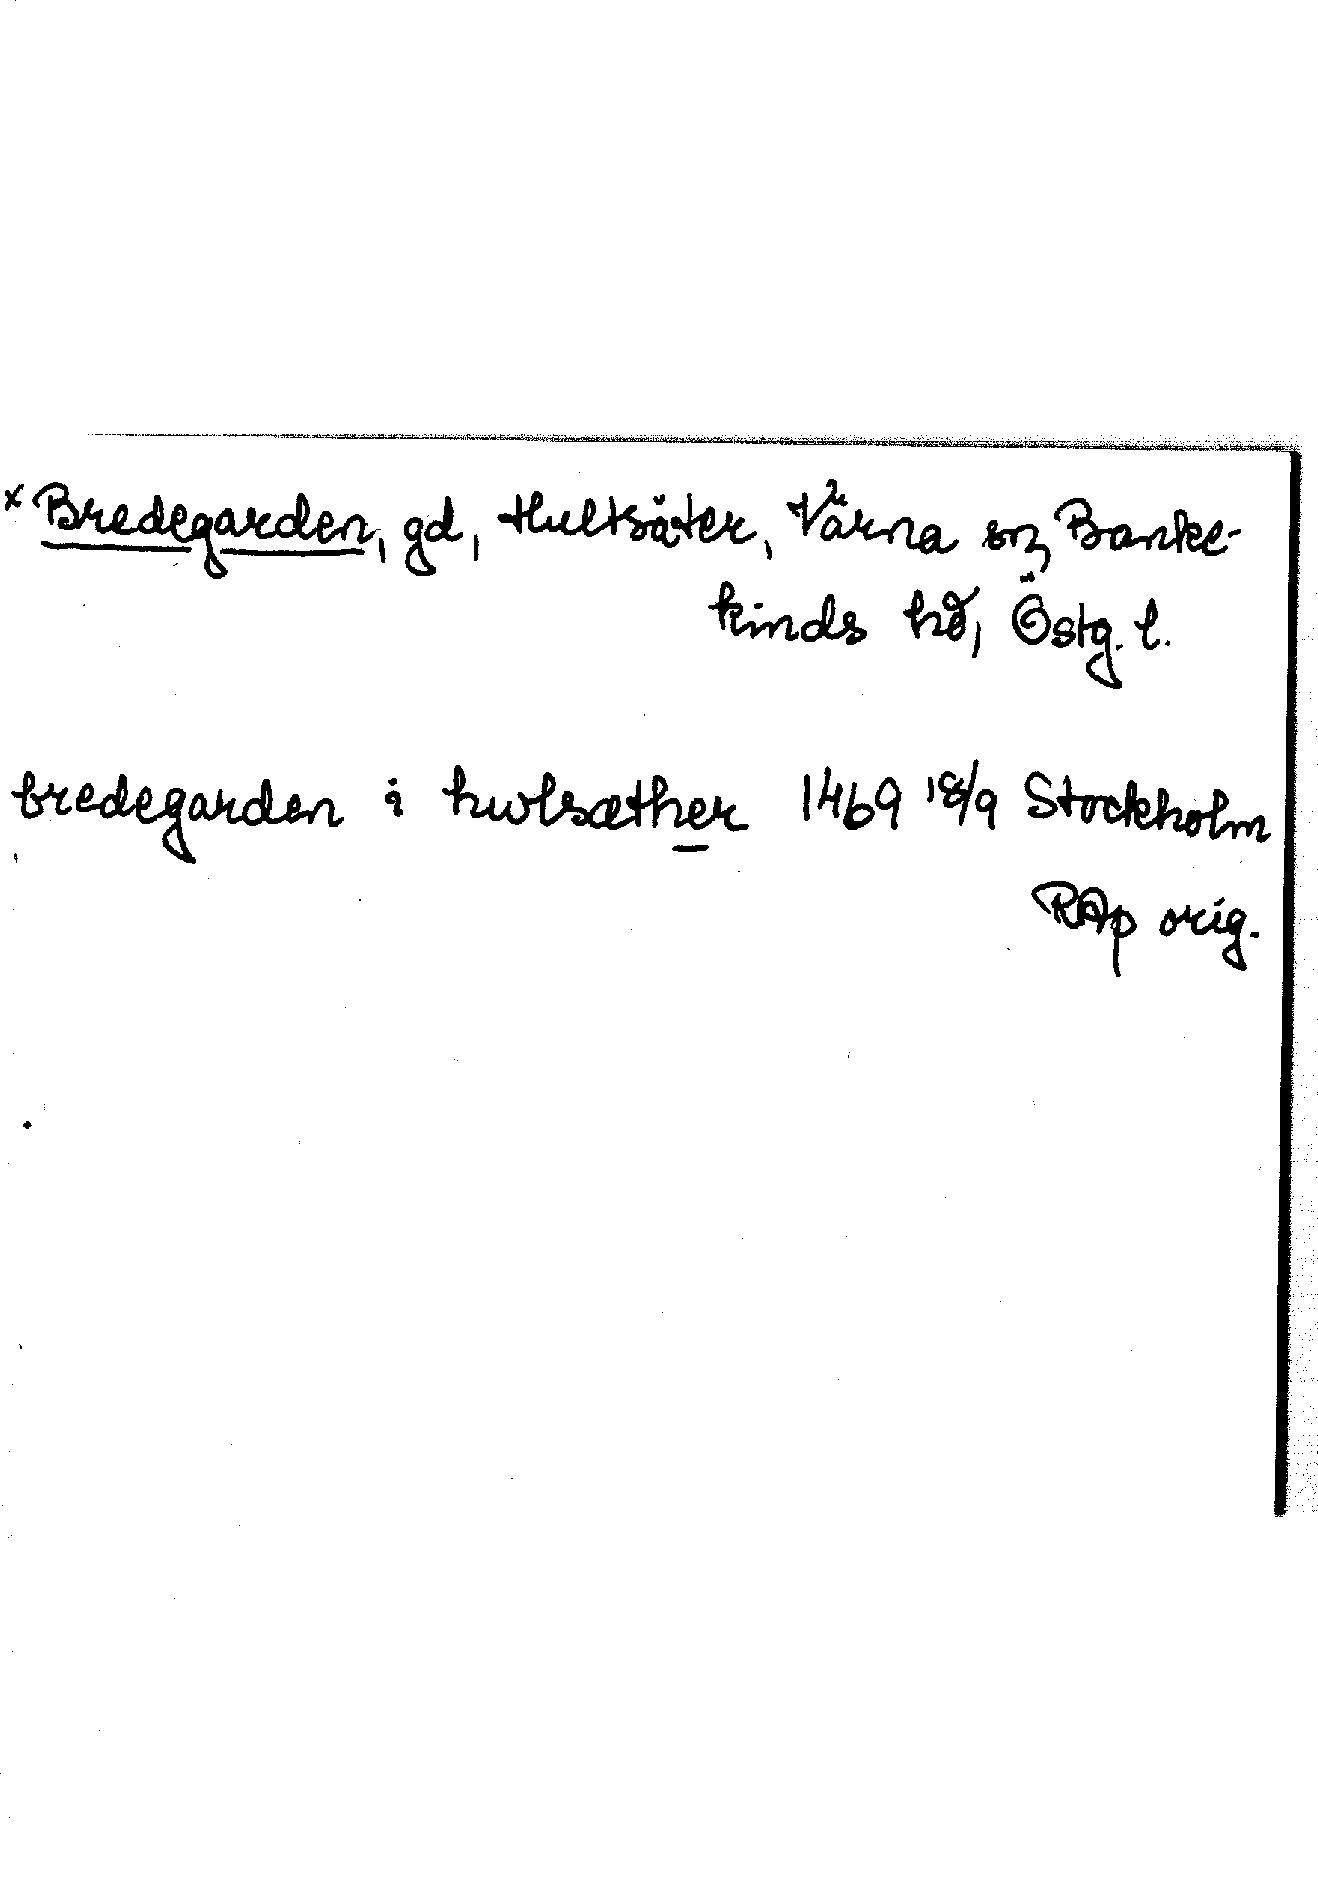 x Bredegarden, gd, Hultsäter, Värna sn, Banke-
kinds hd, Östg. l.
bredegarden i hwlsæther 1469 18/9 Stockholm
RAp orig.